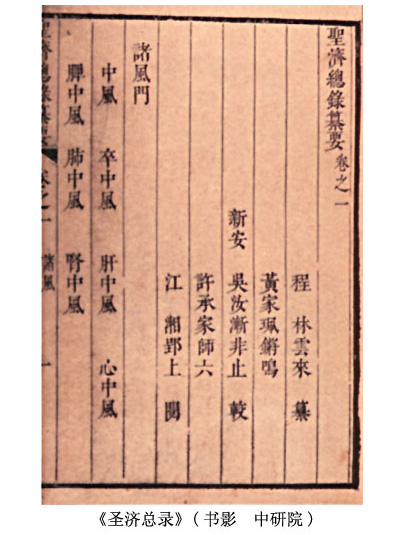 聖濟總錄纂要 卷之一
程 林雲來 纂
黃家珮鏘鳴
新安 吳汝漸非止 較
許承家師六
江 湘郢上 閱
諸風門
中風 卒中風 肝中風 心中風
脾中風 肺中風 腎中風
聖濟總錄纂要 卷之一 諸風 一
《圣济总录》(书影 中研院)